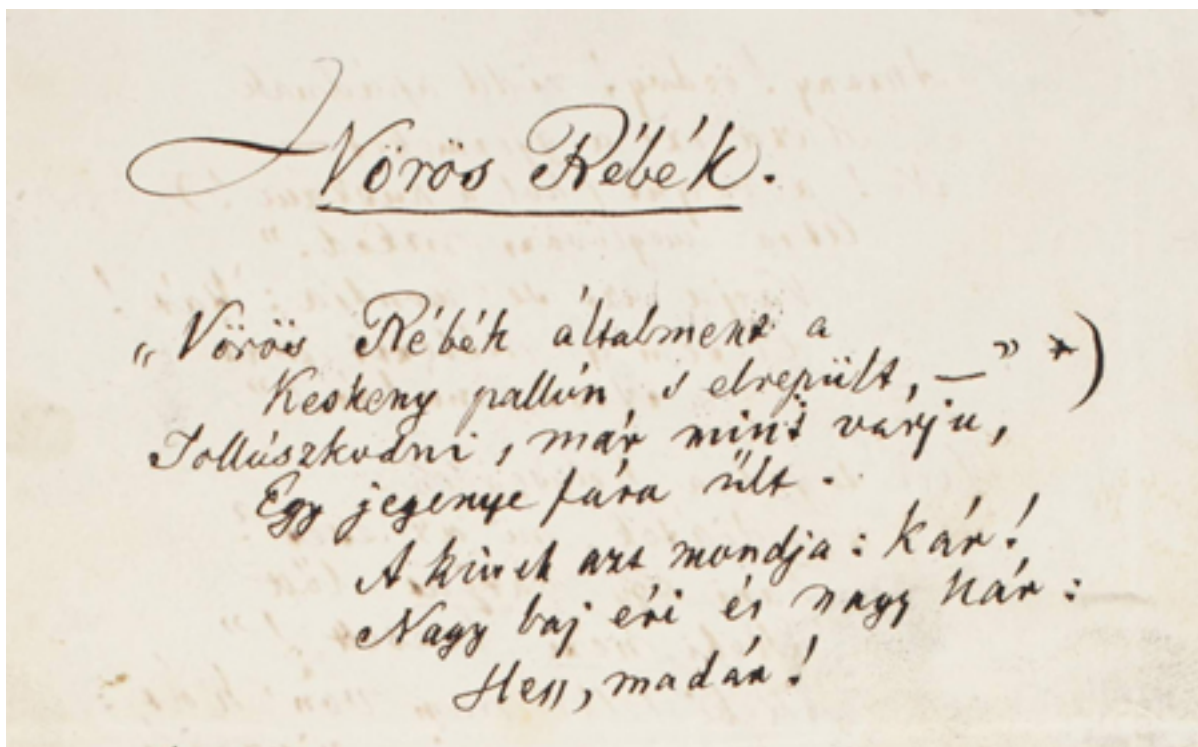 Vörös Rébék.
„Vörös Rébék általment a
Keskeny pallón s elrepült, —” *)
Tollászkodni, már mint várju,
Egy jegenye fára ült.
A kinek azt mondja: kár!
Nagy baj éri és nagy kár:
Hess, madár!